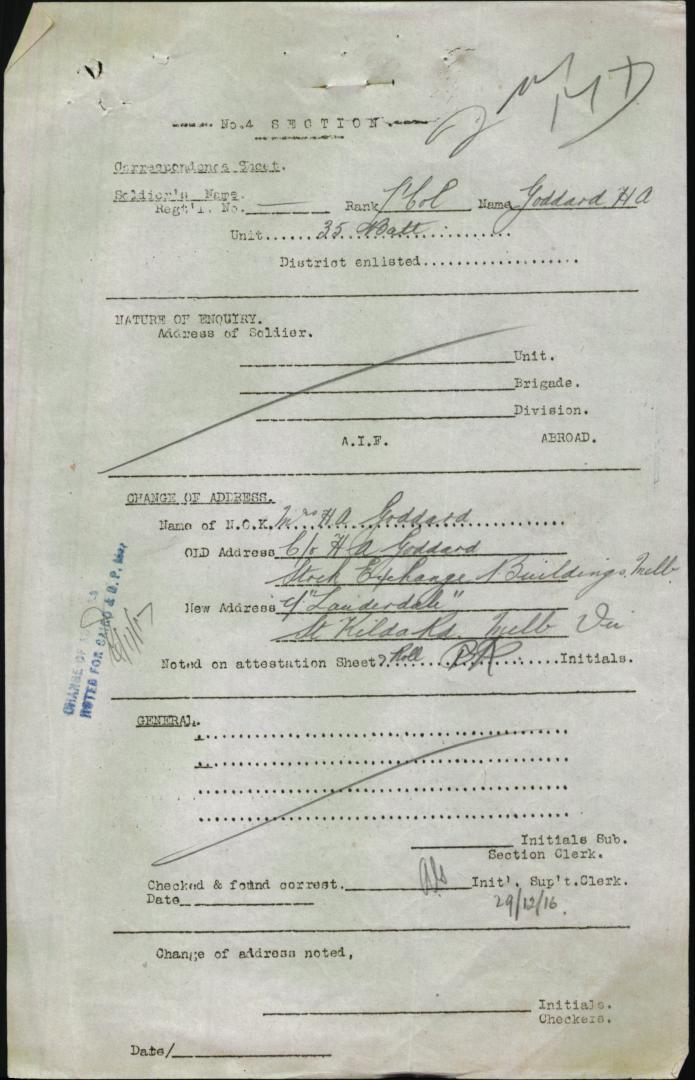 No.4 SECTION
Correspondence Sheet.
Soldier's Name.
Regt'l. No. Rank L/Col Name Goddard H A
Unit...... 35 Batt
District enlisted....................
NATURE OF ENQUIRY.
Address of Soldier.
Unit.
Brigade.
Division.
A.I.F. ABROAD.
CHANGE OF ADDRESS.
Name of N.O.K. Mrs H A Goddard
OLD Address C/o H A Goddard
Stock Exchange Buildings, Melb
New Address "Lauderdale"
St Kilda Rd. Melb Vic
Noted on attestation Sheet, Roll Initials.
CHANGE OF
NOTED FOR & D. P.
GENERAL.
Initials Sub.
Section Clerk.
Checked & found correst. Init'. Sup't.Clerk.
Date 29/12/16.
Change of address noted,
Initials.
Checkers.
Date/